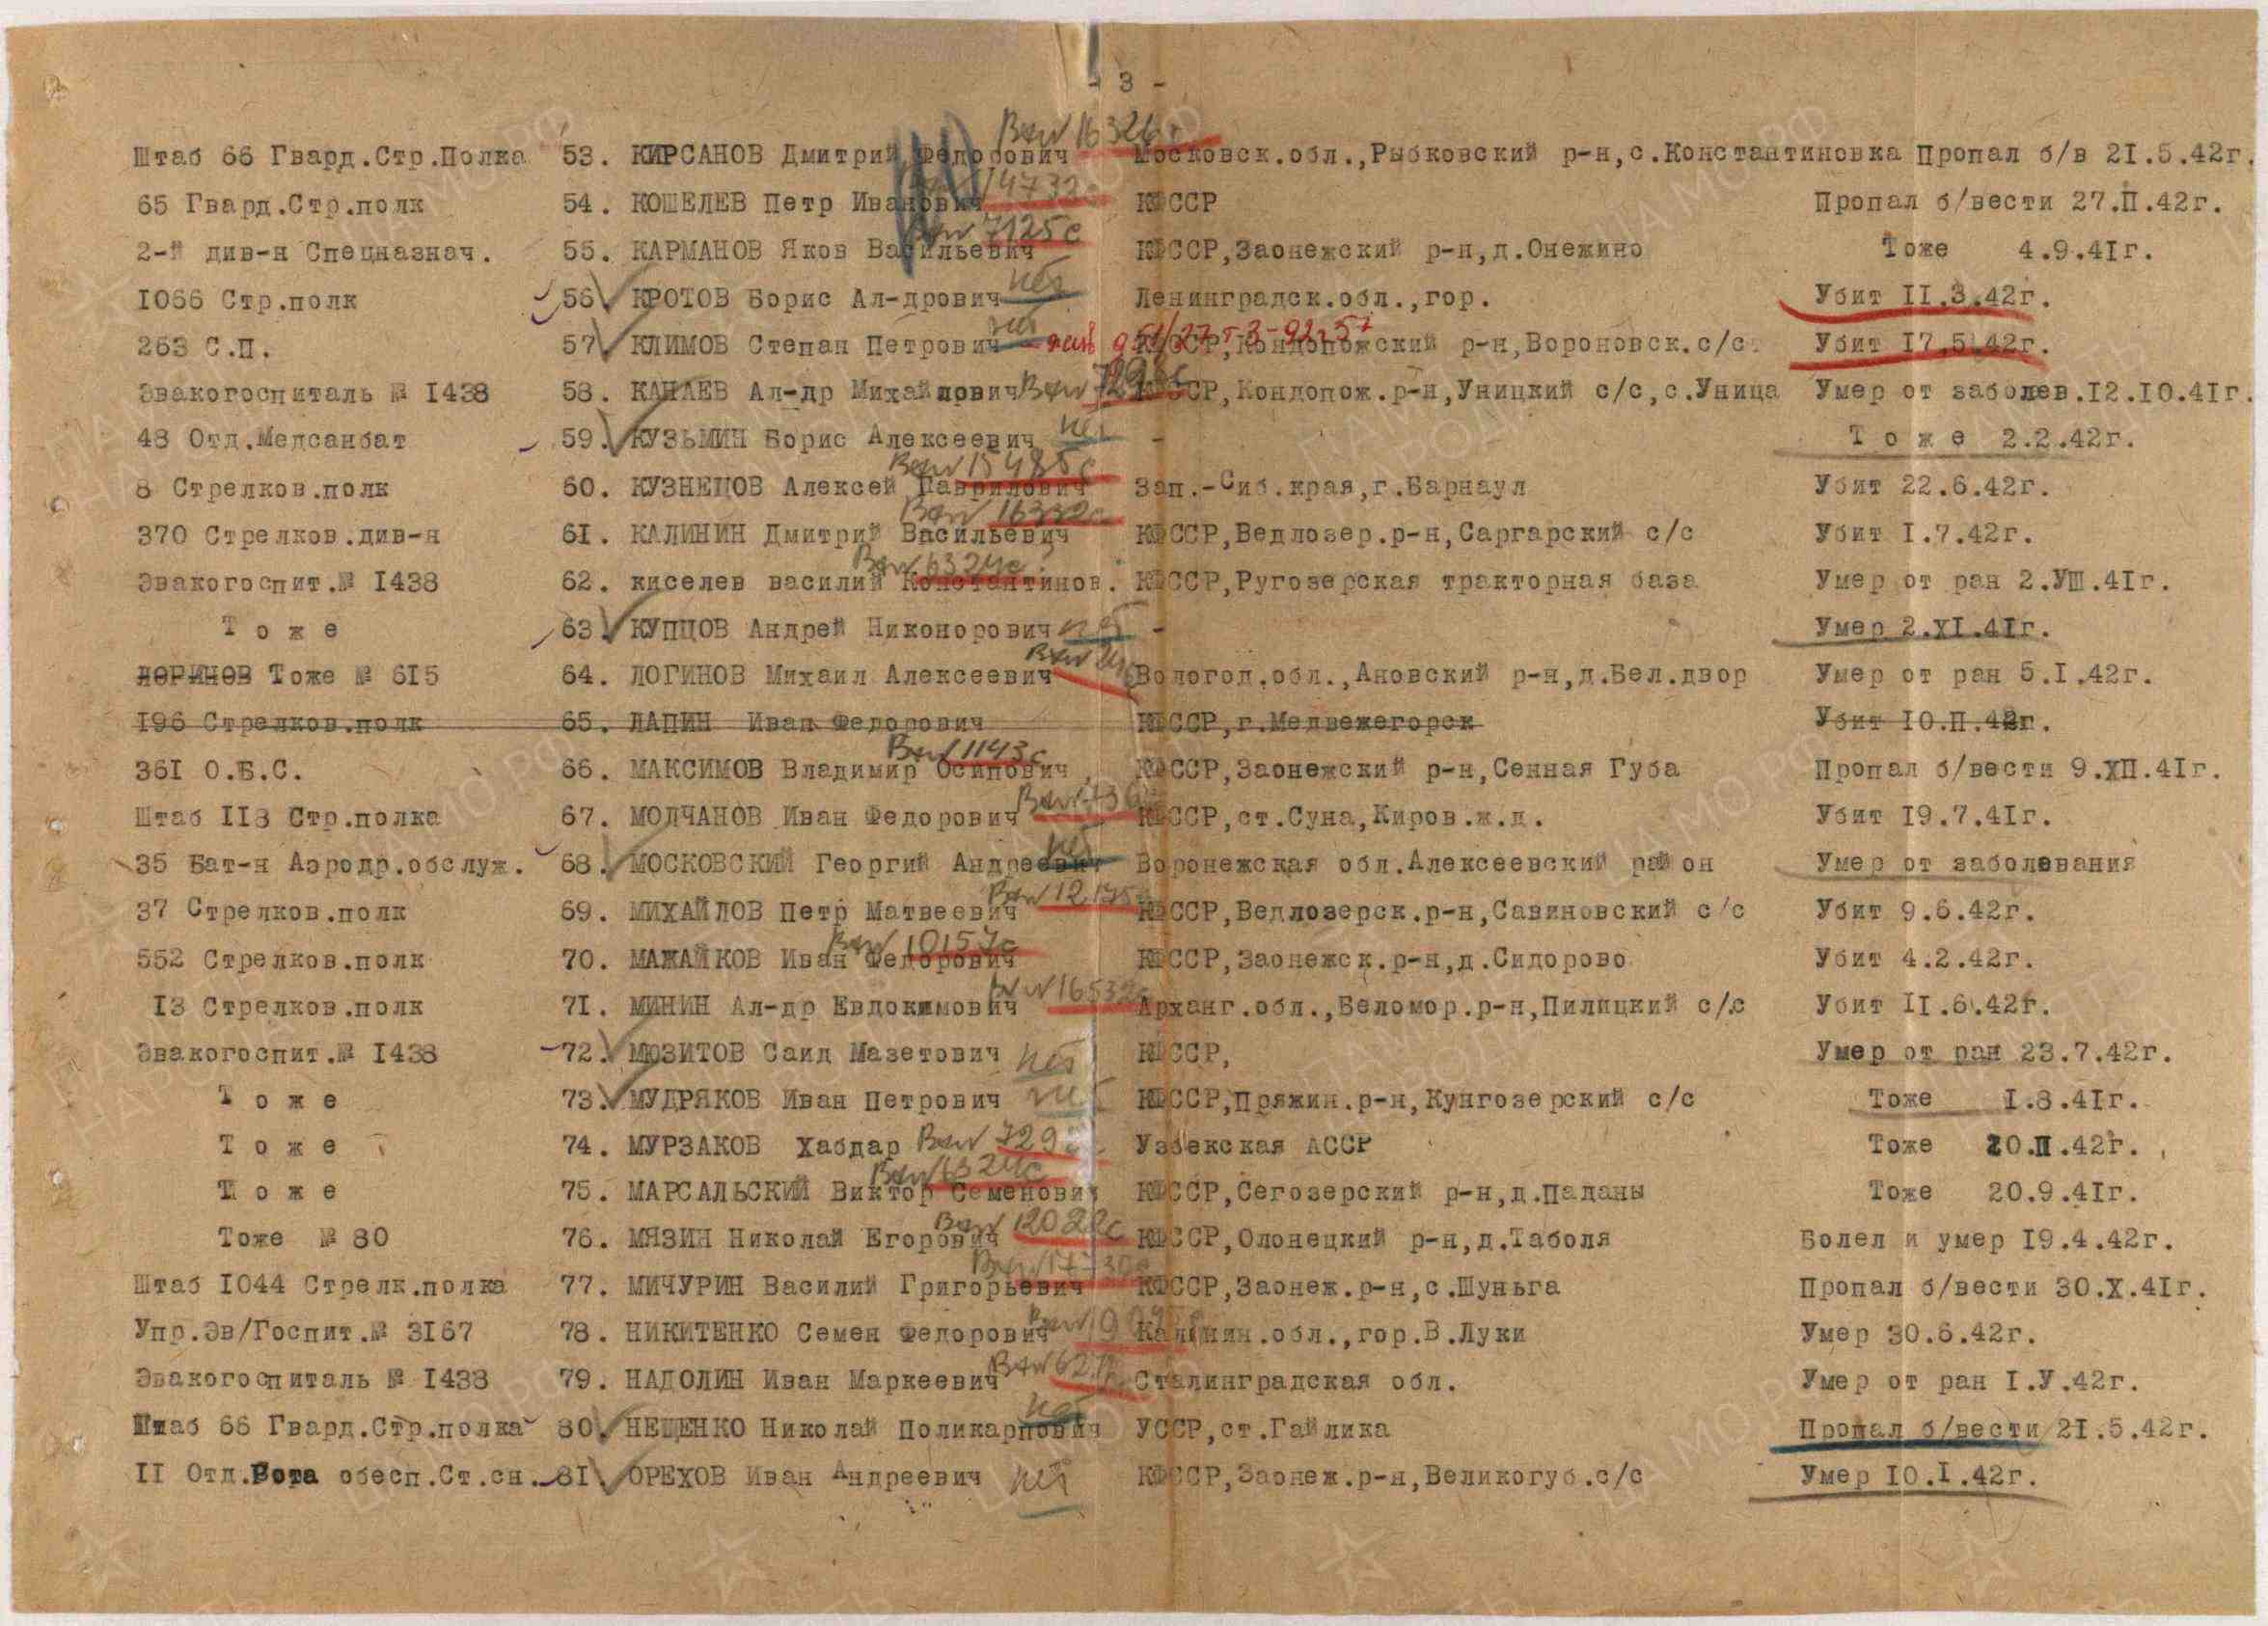 - 3 -
Штаб 66 Гвард.Стр.Полка 53. КИРСАНОВ Дмитрий Федорович Московск.обл.,Рыбковский р-н,с.Константиновка Пропал б/в 2I.5.42г.
65 Гвард.Стр.полк 54. КОШЕЛЕВ Петр Иванович КФССР Пропал б/вести 27.П.42г.
2-й див-н Спецназнач. 55. КАРМАНОВ Яков Васильевич КФССР,Заонежский р-н,д.Онежино Тоже 4.9.4Iг.
I066 Стр.полк 56. КРОТОВ Борис Ал-дрович нет Ленинградск.обл.,гор. Убит II.3.42г.
263 С.П. 57. КЛИМОВ Степан Петрович нет КФССР,Кондопожский р-н,Вороновск.с/с. Убит I7.5.42г.
Эвакогоспиталь № I438 58. КАНАЕВ Ал-др Михайлович КФССР,Кондопож.р-н,Уницкий с/с,с.Уница Умер от заболев.I2.I0.4Iг.
48 Отд.Медсанбат 59. КУЗЬМИН Борис Алексеевич нет - Т о ж е 2.2.42г.
8 Стрелков.полк 60. КУЗНЕЦОВ Алексей Гаврилович Зап.-Сиб.края,г.Барнаул Убит 22.6.42г.
370 Стрелков.див-я 6I. КАЛИНИН Дмитрий Васильевич КФССР,Ведлозер.р-н,Саргарский с/с Убит I.7.42г.
Эвакогоспит.№ I438 62. киселев василий Константинов. КФССР,Ругозерская тракторная база Умер от ран 2.УШ.4Iг.
Т о ж е 63. КУПЦОВ Андрей Никонорович нет - Умер 2.XI.4Iг.
Тоже № 615 64. ЛОГИНОВ Михаил Алексеевич Вологод.обл.,Ановский р-н,д.Бел.двор Умер от ран 5.I.42г.
I96 Стрелков.полк 65. ЛАПИН Иван Федорович КФССР,г.Медвежегорск Убит I0.П.42г.
36I О.Б.С. 66. МАКСИМОВ Владимир Осипович КФССР,Заонежский р-н,Сенная Губа Пропал б/вести 9.ХП.4Iг.
Штаб II8 Стр.полка 67. МОЛЧАНОВ Иван Федорович КФССР,ст.Суна,Киров.ж.д. Убит I9.7.4Iг.
35 Бат-н Аэродр.обслуж. 68. МОСКОВСКИЙ Георгий Андреевич нет Воронежская обл.Алексеевский район Умер от заболевания
37 Стрелков.полк 69. МИХАЙЛОВ Петр Матвеевич КФССР,Ведлозерск.р-н,Савиновский с/с Убит 9.6.42г.
552 Стрелков.полк 70. МАЖАЙКОВ Иван Федорович КФССР,Заонежск.р-н,д.Сидорово Убит 4.2.42г.
I3 Стрелков.полк 7I. МИНИН Ал-др Евдокимович Арханг.обл.,Беломор.р-н,Пилицкий с/с Убит II.6.42г.
Эвакогоспит.№ I438 72. МЮЗИТОВ Саид Мазетович нет КФССР, Умер от ран 23.7.42г.
Т о ж е 73. МУДРЯКОВ Иван Петрович нет КФССР,Пряжин.р-н,Кунгозерский с/с Тоже I.8.4Iг.
Т о ж е 74. МУРЗАКОВ Хабдар Узбекская АССР Тоже 20.П.42г.
Т о ж е 75. МАРСАЛЬСКИЙ Виктор Семенович КФССР,Сегозерский р-н,д.Паданы Тоже 20.9.4Iг.
Тоже № 80 76. МЯЗИН Николай Егорович КФССР,Олонецкий р-н,д.Таболя Болел и умер I9.4.42г.
Штаб I044 Стрелк.полка 77. МИЧУРИН Василий Григорьевич КФССР,Заонеж.р-н,с.Шуньга Пропал б/вести 30.Х.4Iг.
Упр.Эв/Госпит.№ 3I67 78. НИКИТЕНКО Семен Федорович Калинин.обл.,гор.В.Луки Умер 30.6.42г.
Эвакогоспиталь № I438 79. НАДОЛИН Иван Маркеевич Сталинградская обл. Умер от ран I.У.42г.
Штаб 66 Гвард.Стр.полка 80. НЕЩЕНКО Николай Поликарпович нет УССР,ст.Гайлика Пропал б/вести 2I.5.42г.
II Отд.Рота обесп.Ст.сн. 8I. ОРЕХОВ Иван Андреевич нет КФССР,Заонеж.р-н,Великогуб.с/с Умер I0.I.42г.